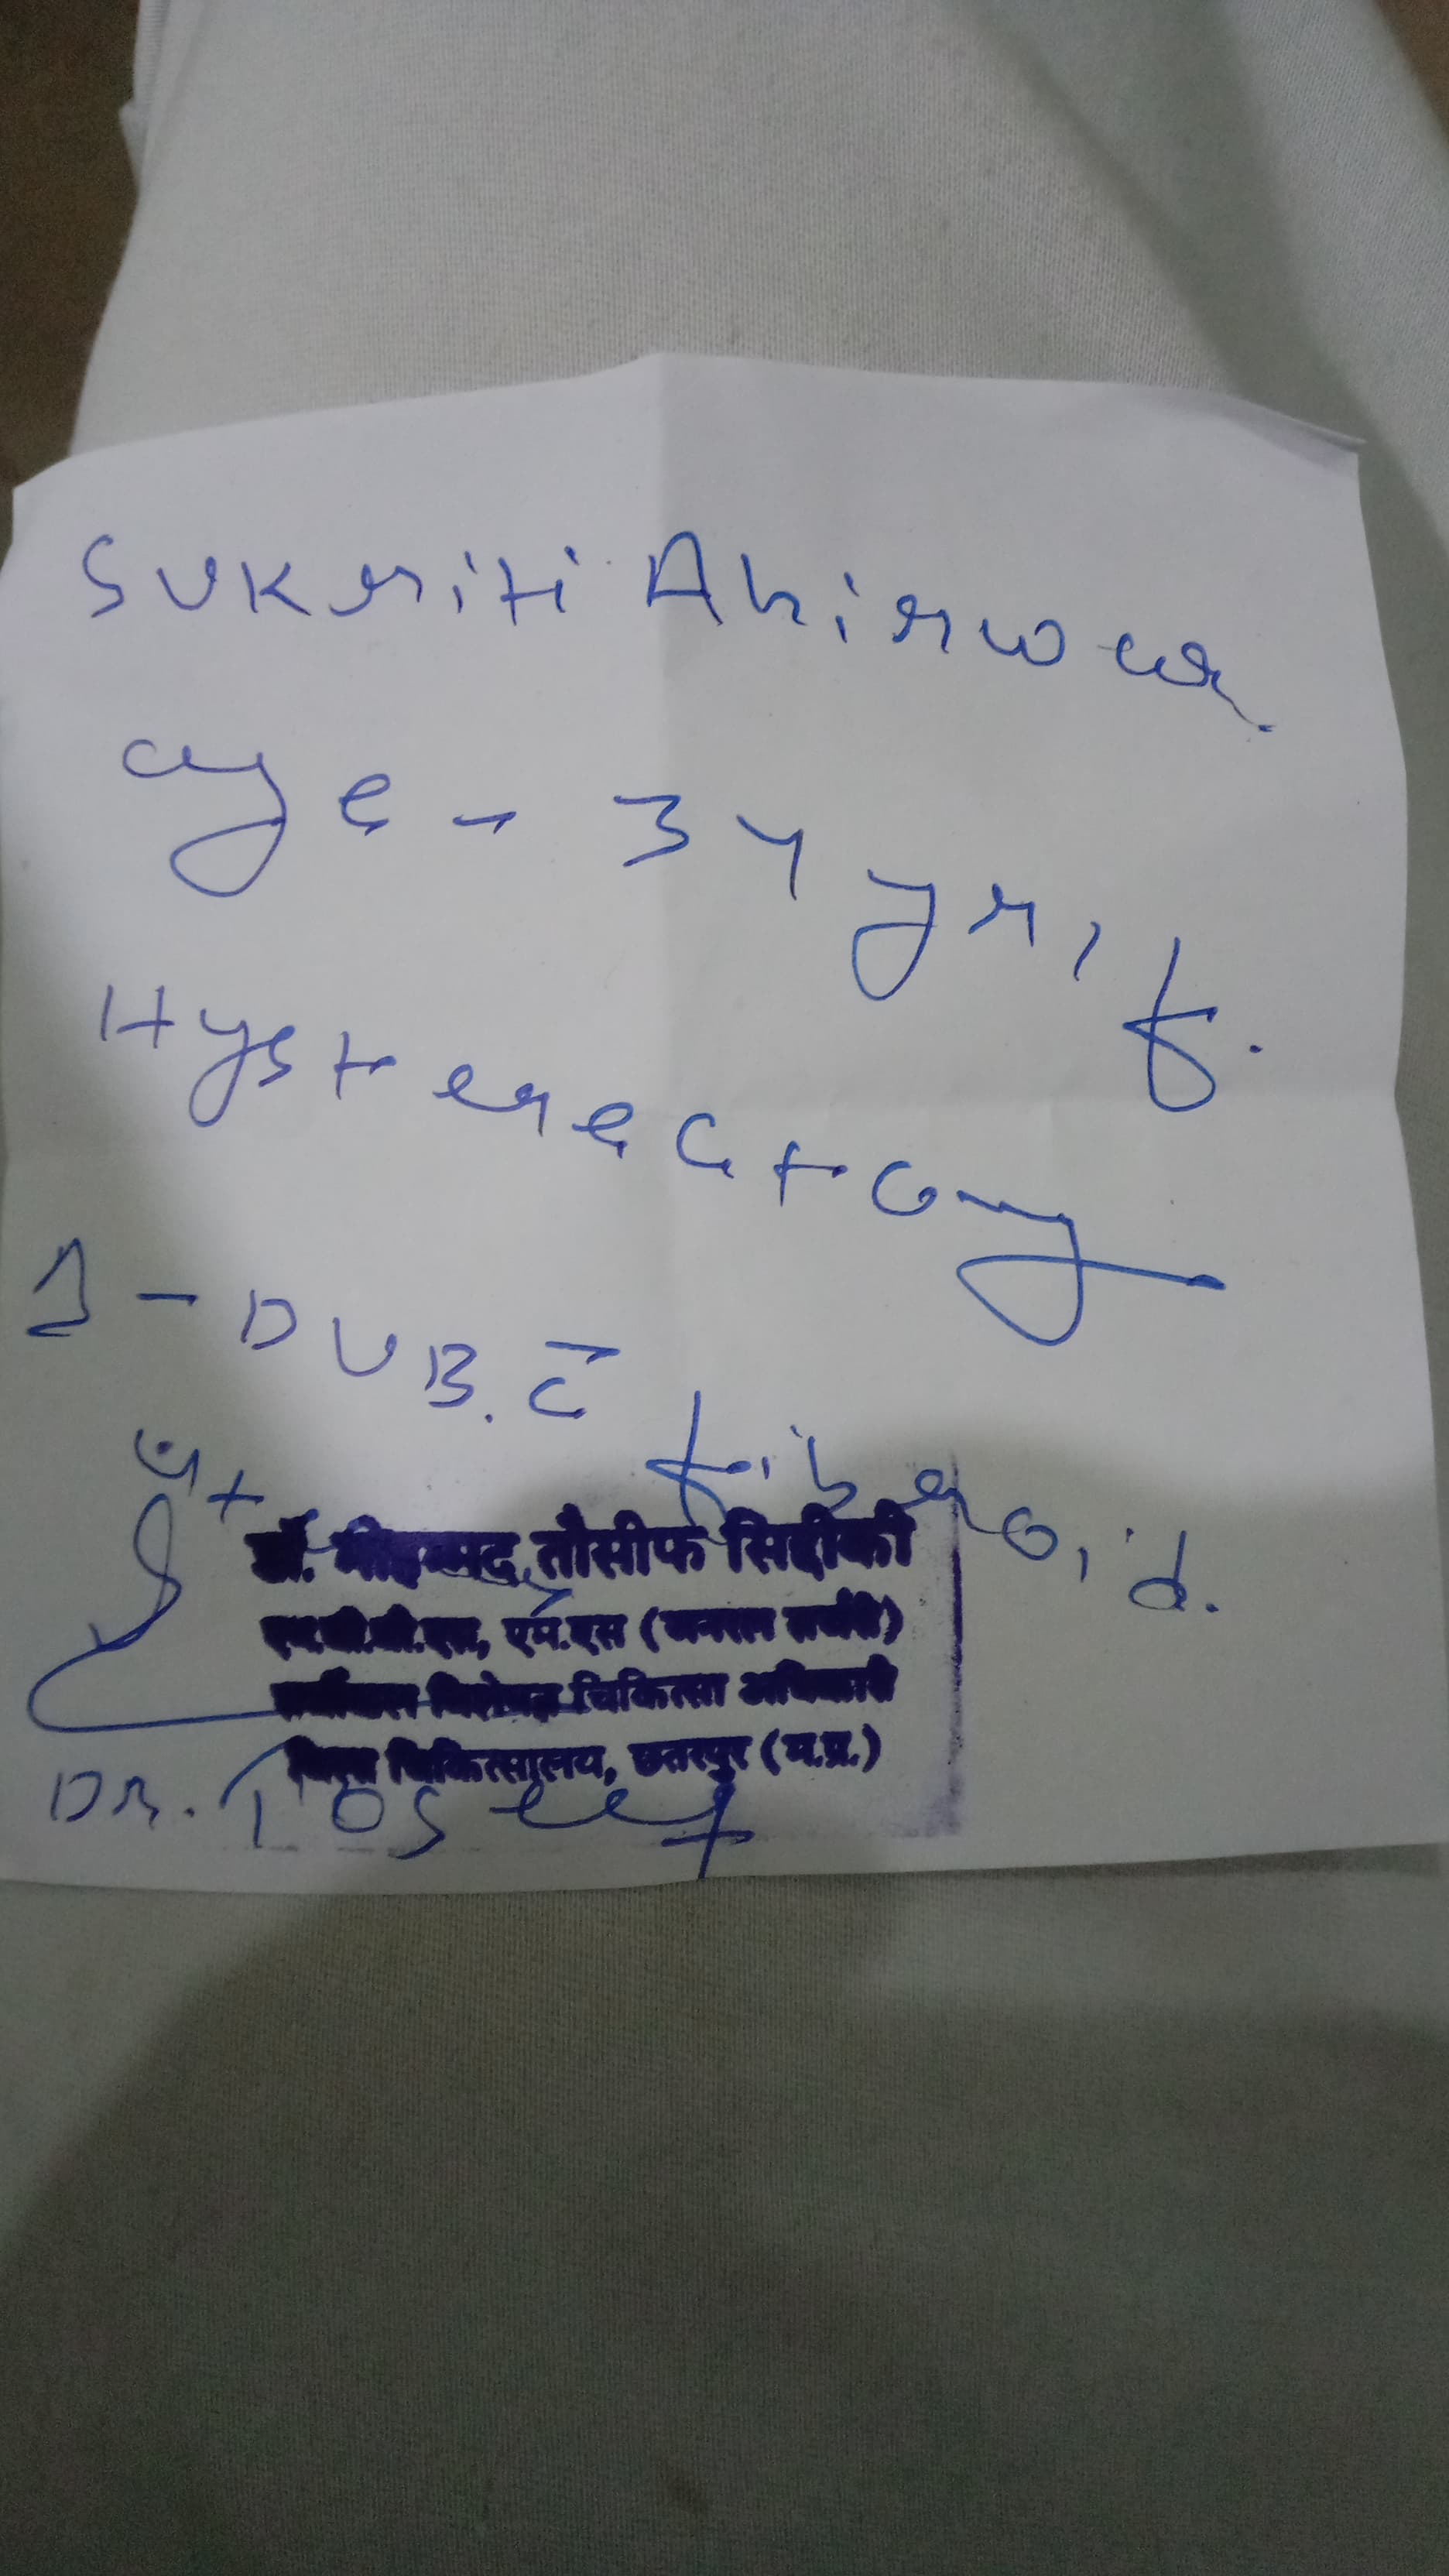 Sukriti Ahirwar
age - 34 yr, f.
Hysterectomy
1 - DUB. c̄
fiberoid.
डॉ. मोहम्मद तौसीफ सिद्दीकी
एम.बी.बी.एस, एम.एस (जनरल सर्जरी)
सर्जीकल विशेषज्ञ चिकित्सा अधिकारी
जिला चिकित्सालय, छतरपुर (म.प्र.)
DR. Toseef